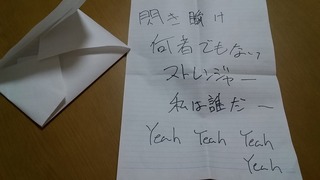 閃き瞬け
何者でもないっ
ストレンジャー
私は誰だー
Yeah Yeah Yeah
Yeah